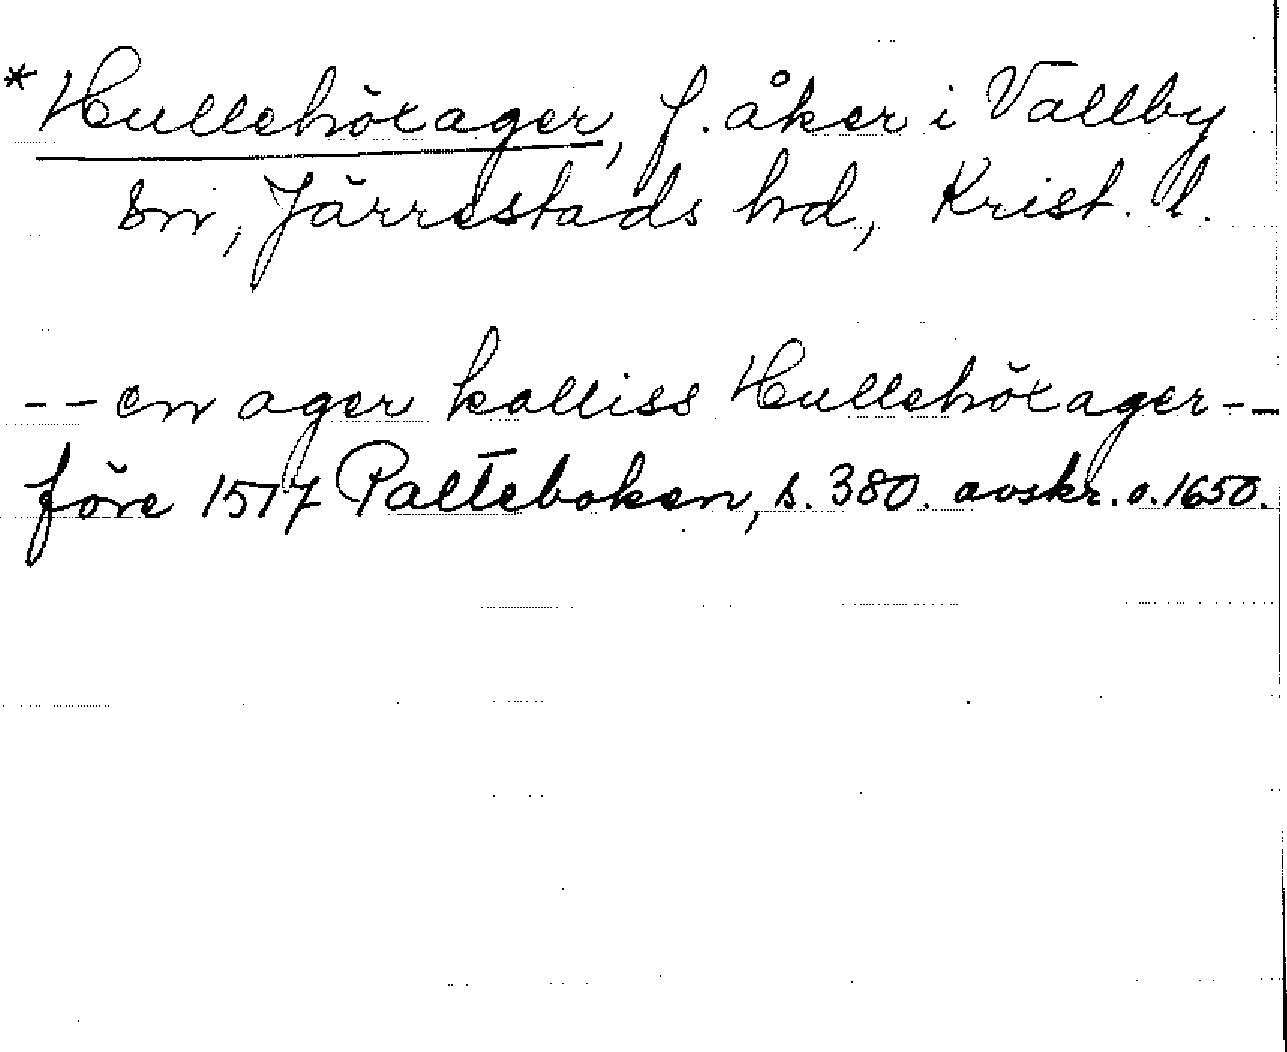 *Hullehöxager, f. åker i Vallby
sn, Järrestads hd, Krist. l.
-- en ager kalliss Hullehöxager --
före 1517 Palteboken, s. 380. avskr. o. 1650.